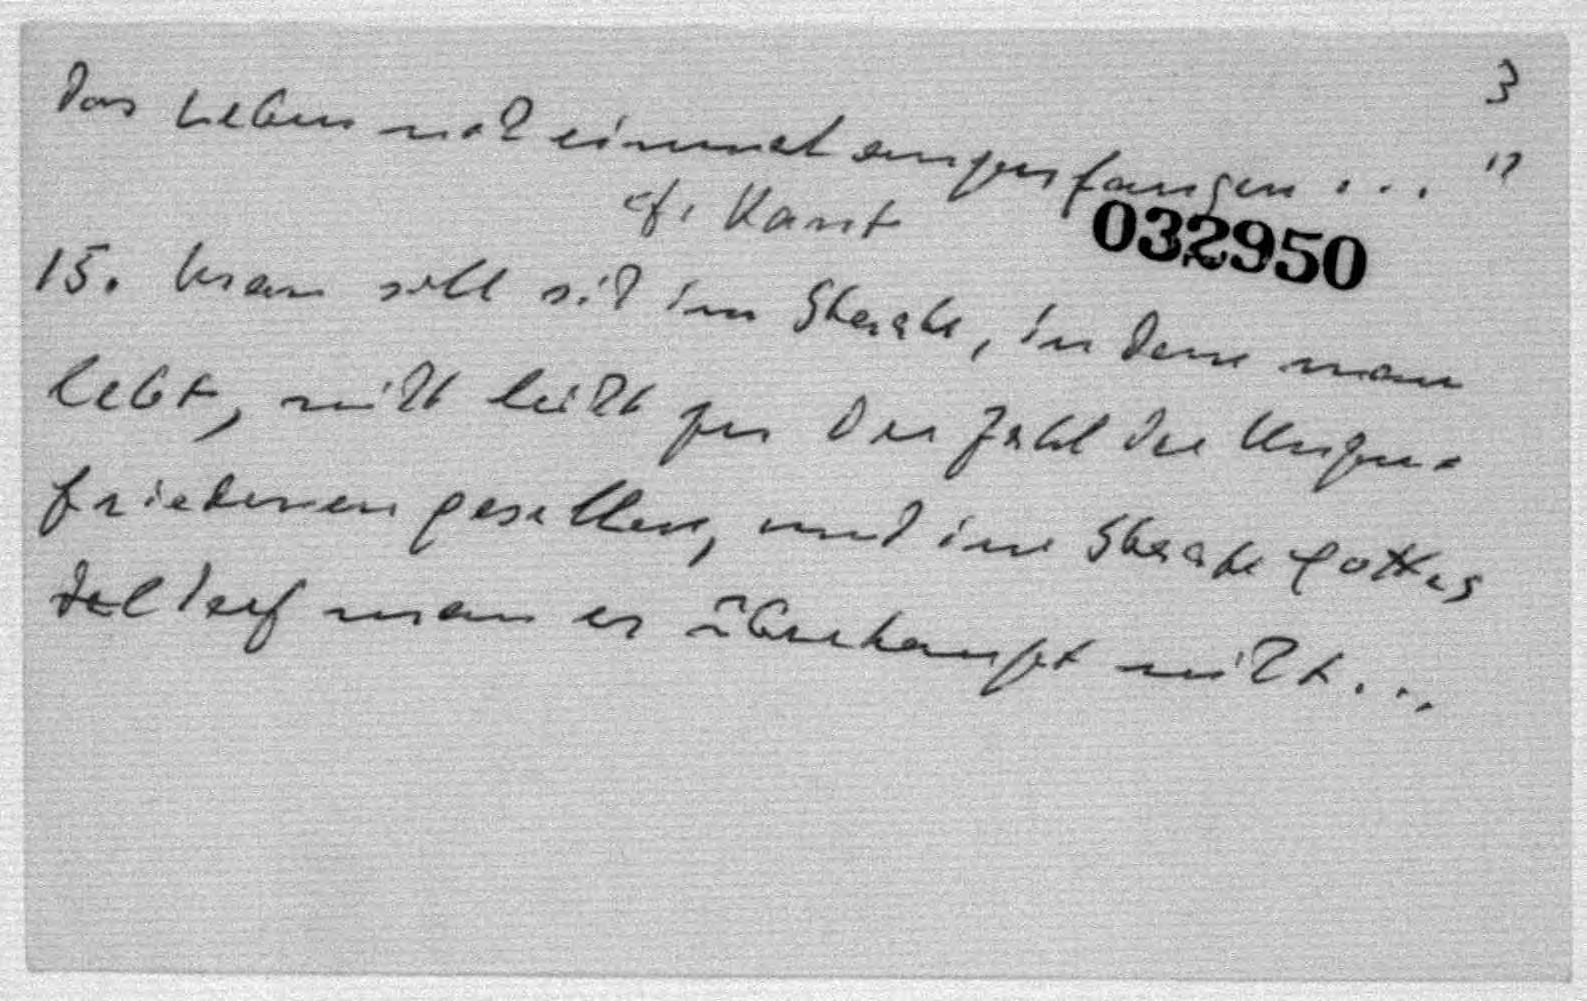 3
das Leben noch einmal anzufangen... "
cf. Kant
032950
15. Man soll sich im Staate, in dem man
lebt, nicht leicht zu der Zahl der Unzu-
friedenen gesellen, und im Staate Gottes
darf man es überhaupt nicht...